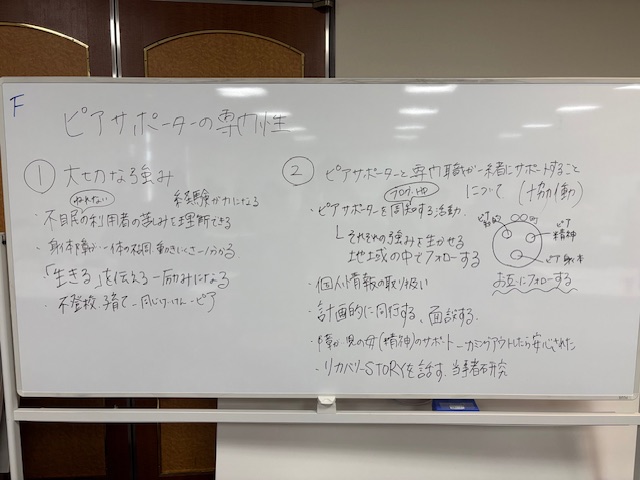 F
ピアサポーターの専門性
① 大切な強み
ねれない
経験が力になる
・不眠の利用者の苦しみを理解できる
・身体障がい…体の不同、動きにくさ…分かる
・「生きる」を伝える…励みになる
・不登校、子育て…同じけいけん…ピア
② ピアサポーターと専門職が一緒にサポートすること
について (協働)
・ピアサポーターを周知する活動
それぞれの強みを生かせる
地域の中でフォローする
ピア
知的
ピア
精神
ピア 身体
お互いにフォローする
・個人情報の取り扱い
・計画的に同行する、面談する。
・障がい児の母(精神)のサポート…カミングアウトしたら安心された
・リカバリーSTORYを話す、当事者研究